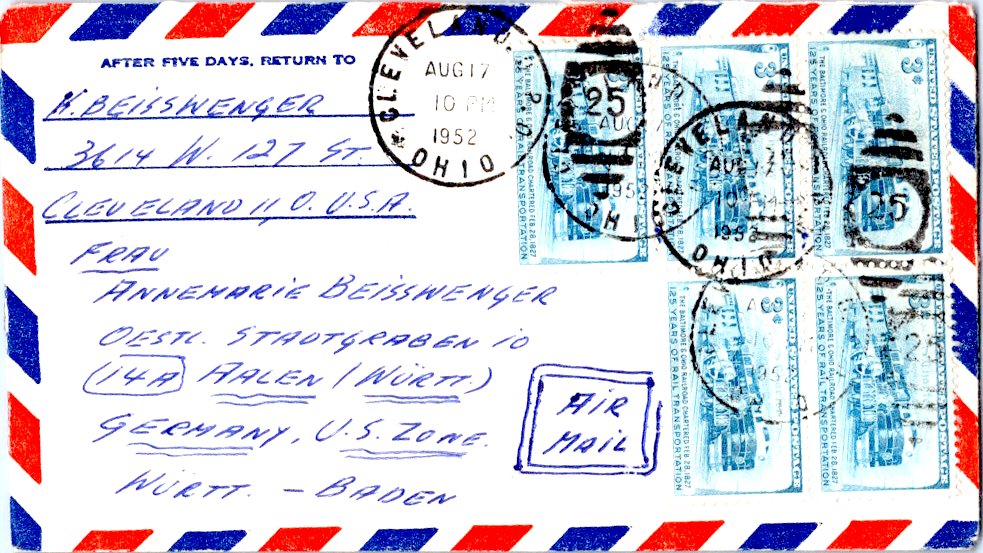 AFTER FIVE DAYS, RETURN TO
K. BEISSWENGER
3614 W. 127 ST.
CLEVELAND 11, O. U.S.A.
FRAU
ANNEMARIE BEISSWENGER
OESTL. STADTGRABEN 10
(14A) AALEN (WÜRTT.)
GERMANY, U.S. ZONE.
WÜRTT. – BADEN
AIR
MAIL
CLEVELAND,
AUG 17
10 PM
1952
OHIO
25
3¢
UNITED STATES POSTAGE
THE BALTIMORE & OHIO RAILROAD CHARTERED FEB. 28, 1827
125 YEARS OF RAIL TRANSPORTATION
3¢
THE BALTIMORE & OHIO RAILROAD CHARTERED FEB. 28, 1827
125 YEARS OF RAIL TRANSPORTATION
3¢
UNITED STATES POSTAGE
THE BALTIMORE & OHIO RAILROAD CHARTERED FEB. 28, 1827
125 YEARS OF RAIL TRANSPORTATION
CLEVELAND
AUG 17
1952
OHIO
25
3¢
UNITED STATES POSTAGE
THE BALTIMORE & OHIO RAILROAD CHARTERED FEB. 28, 1827
125 YEARS OF RAIL TRANSPORTATION
3¢
UNITED STATES POSTAGE
THE BALTIMORE & OHIO RAILROAD CHARTERED FEB. 28, 1827
125 YEARS OF RAIL TRANSPORTATION
25